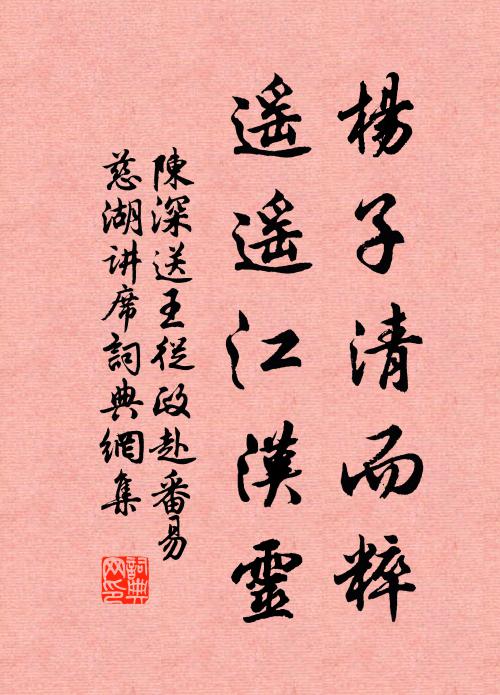 楊子清而粹
遥遥江漢靈
陳深送王從政赴番易
慈湖讲席詞典網集
詞典网印